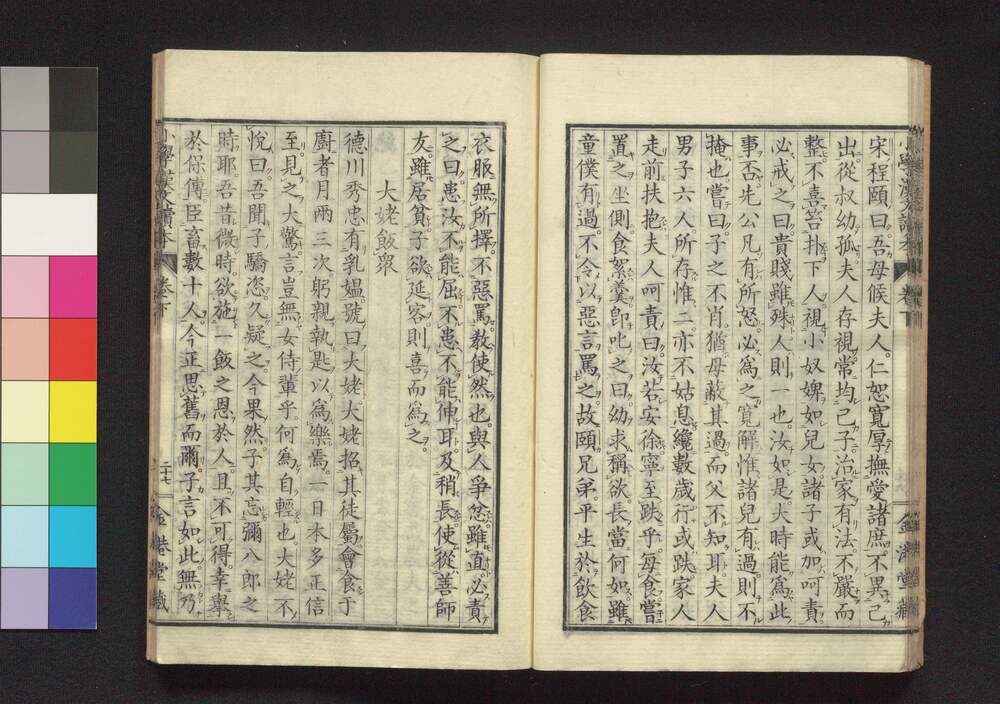 宋程頤曰吾母候夫人仁恕寬厚撫愛諸庶不異己
出從叔幼孤夫人存視常均己子治家有法不嚴而
整不喜笞扑下人視小奴婢如兒女諸子或加呵責
必戒之曰貴賤雖殊人則一也汝如是大時能爲此
事否先公凡有所怒必爲之寬解惟諸兒有過則不
掩也嘗曰子之不肖猶母蔽其過而父不知耳夫人
男子六人所存惟二亦不姑息纔數歲行或跌家人
走前扶抱夫人呵責曰汝若安徐寧至跌乎每食嘗
置之坐側食絮羹卽叱之曰幼求稱欲長當何如雖
童僕有過不令以惡言罵之故頤兄弟平生於飮食
衣服無所擇不惡罵敎使然也與人爭忿雖直必責
之曰患汝不能屈不患不能伸耳及稍長使從善師
友雖居貧子欲延客則喜而爲之
大姥飯衆
德川秀忠有乳媼號曰大姥大姥招其徒屬會食于
廚者月兩三次躬親執匙以爲樂焉一日本多正信
至見之大驚言豈無女侍輩乎何爲自輕也大姥不
悅曰吾聞子驕恣久疑之今果然子其忘彌八郎之
時耶吾昔微時欲施一飯之恩於人且不可得幸擧
於保傅臣畜數十人今正思舊而爾子言如此無乃
小學漢文讀本 卷下 二十七 金港堂藏